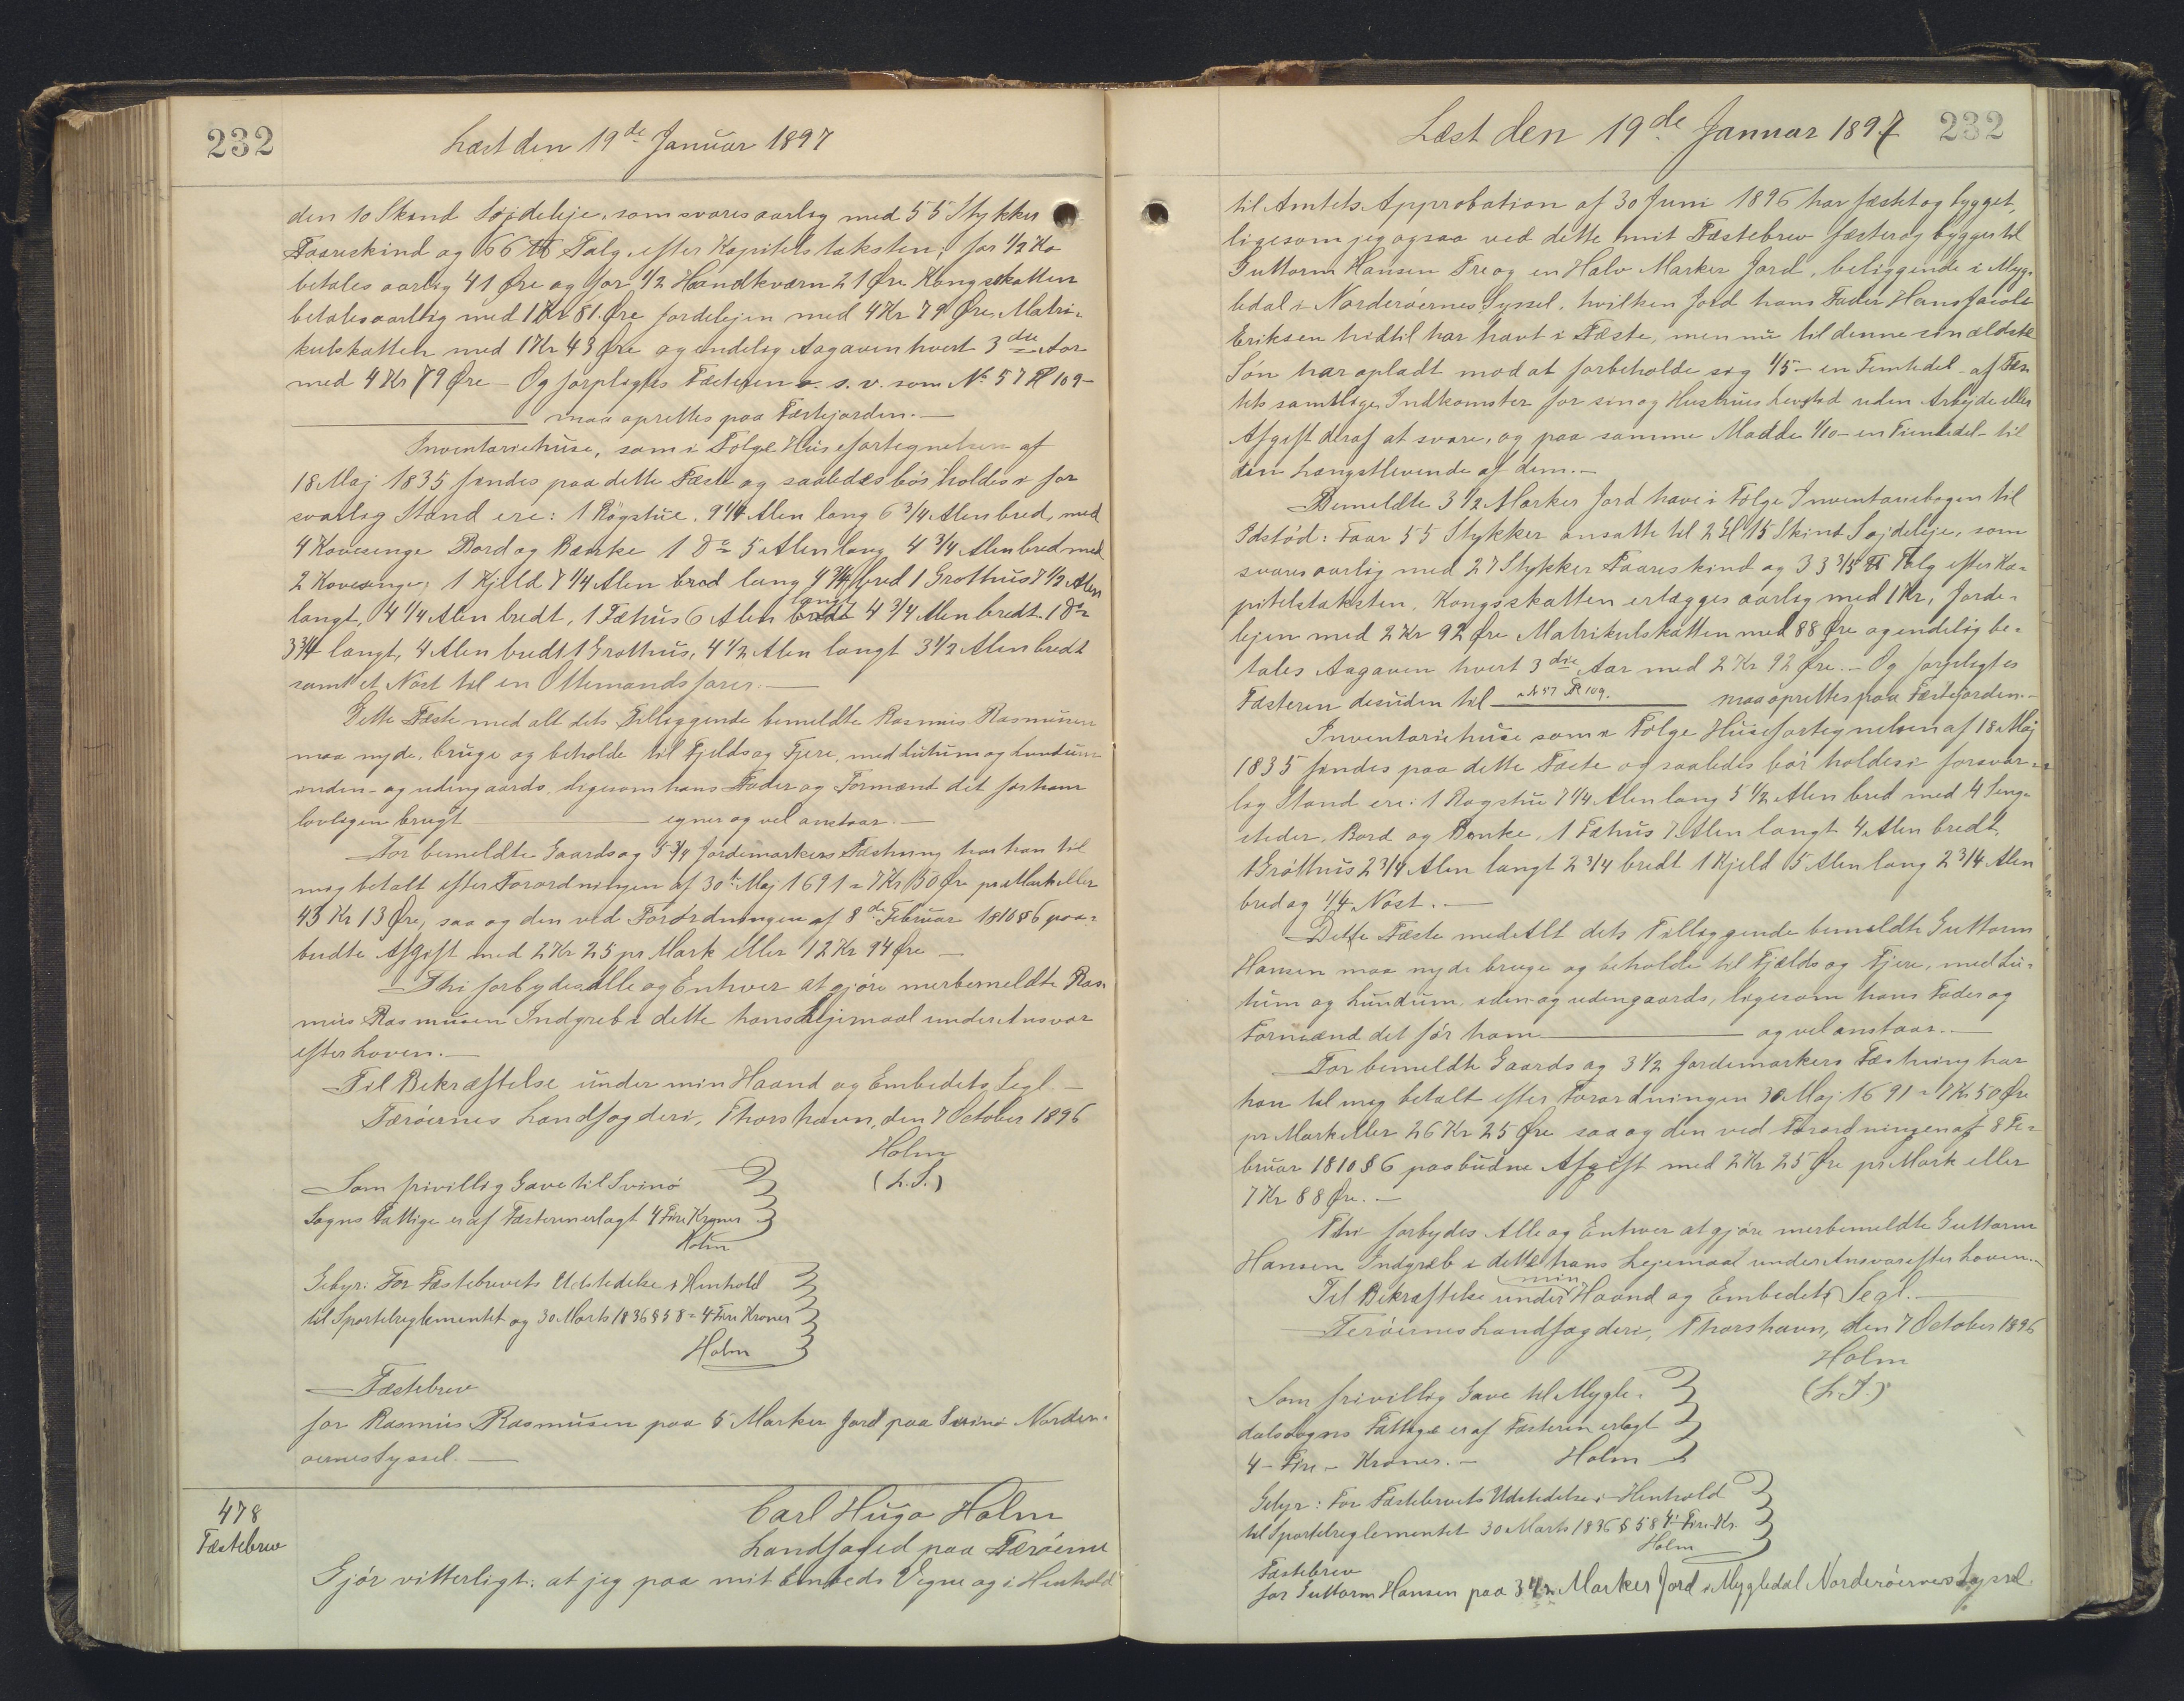 232
Læst den 19de Januar 1897
den 10 Skind Søjdeleje, som svares aarlig med 55 Stykker
Faareskind og 66 ℔ Talg, efter Kapitelstaksten; for 1/2 Ko
betales aarlig 41 Øre og for 1/2 Haandkværn 21 Øre Kongsskatten
betales aarlig med 1 Kr 81 Øre Jordelejen med 4 Kr 79 Øre, Matri-
kulskatten med 1 Kr 43 Øre og endelig Aagaven hvert 3die Aar
med 4 Kr 79 Øre — Og forpligtes Fæsteren o. s. v. som No 57 P 109 —
maa oprettes paa Fæstejorden. —
Inventariehuse, som i Følge Husefortegnelsen af
18 Maj 1835 findes paa dette Fæste og saaledes bør holdes i for
svarlig Stand ere: 1 Røgstue, 9 1/4 Alen lang 6 3/4 Alen bred, med
4 Kovesenge Bord og Bænke 1 do 5 Alen lang 4 3/4 Alen bred med
2 Kovesenge; 1 Kjeld 7 1/4 Alen bred lang 4 3/4 bred 1 Grothus 7 1/2 Alen
langt, 4 1/4 Alen bredt, 1 Fæhus 6 Alen bredt langt 4 3/4 Alen bredt. 1 do
3 3/4 langt, 4 Alen bredt 1 Grothus, 4 1/2 Alen langt 3 1/2 Alen bredt
samt et Nøst til en Ottemandsfarer. —
Dette Fæste med alt dets Tilliggende bemeldte Rasmus Rasmusen
maa nyde, bruge og beholde til Fjelds og Fjere, med Lutum og Lundum
inden- og udengaards, ligesom hans Fader og Formænd det før ham
lovligen brugt egner og vel anstaar. —
For bemeldte Gaards og 5 3/4 Jordemarkers Fæstning har han til
mig betalt efter Forordningen af 30te Maj 1691 = 7 Kr 50 Øre pr Mark eller
43 Kr 13 Øre, saa og den ved Forordningen af 8de Februar 1810 § 6 paa-
budte Afgift med 2 Kr 25 pr Mark eller 12 Kr 94 Øre —
Thi forbydes Alle og Enhver at gjøre merbemeldte Ras-
mus Rasmusen Indgreb i dette hans Lejemaal under Ansvar
efter Loven. —
Til Bekræftelse under min Haand og Embedets Segl. —
Færøernes Landfogderi, Thorshavn, den 7 October 1896
Holm
(L. S.)
Som frivillig Gave til Svinø
Sogns Fattige er af Fæsteren erlagt 4 Fire Kroner
Holm
Gebyr: For Fæstebrevets Udstedelse i Henhold
til Sportelreglementet og 30 Marts 1836 § 58 = 4 Fire Kroner
Holm
Fæstebrev
for Rasmus Rasmusen paa 5 Marker Jord paa Svinø Norder-
øernes Syssel. —
478
Fæstebrev
Carl Hugo Holm
Landfoged paa Færøerne
Gjør vitterligt: at jeg paa mit Embeds Vegne og i Henhold
Læst den 19de Januar 1897
232
til Amtets Approbation af 30 Juni 1896 har fæstet og bygget,
ligesom jeg ogsaa ved dette mit Fæstebrev fæster og bygger til
Guttorm Hansen Tre og en Halv Marker Jord, beliggende i Myg-
ledal i Norderøernes Syssel, hvilken Jord hans Fader Hans Jacob
Eriksen hidtil har havt i Fæste, men nu til denne sin ældste
Søn har opladt mod at forbeholde sig 1/5 — en Femtedel — af Fæs
tets samtlige Indkomster for sin og Hustrues Levetid uden Arbejde eller
Afgift deraf at svare, og paa samme Maade 1/10 — en Tiendedel — til
den Længstlevende af dem. —
Bemeldte 3 1/2 Marker Jord have i Følge Inventariebogen til
Idstød: Faar 55 Stykker ansatte til 2 Gl 15 Skind Søjdeleje, som
svares aarlig med 27 Stykker Faareskind og 33 3/5 ℔ Talg efter Ka-
pitelstaksten, Kongsskatten erlægges aarlig med 1 Kr, Jorde-
lejen med 2 Kr 92 Øre Matrikulskatten med 88 Øre og endelig be-
tales Aagaven hvert 3die Aar med 2 Kr 92 Øre. — Og forpligtes
Fæsteren desuden til No 57 P 109. maa oprettes paa Fæstejorden. —
Inventariehuse som i Følge Husefortegnelsen af 18 Maj
1835 findes paa dette Fæste og saaledes bør holdes i forsvar-
lig Stand ere: 1 Røgstue 7 1/4 Alen lang 5 1/2 Alen bred med 4 Senge-
steder, Bord og Bænke, 1 Fæhus 7 Alen langt 4 Alen bredt,
1 Grøthus 2 3/4 Alen langt 2 3/4 bredt 1 Kjeld 5 Alen lang 2 3/4 Alen
bred og 1/4 Nøst. —
Dette Fæste med Alt dets Tilliggende bemeldte Guttorm
Hansen maa nyde bruge og beholde til Fjælds og Fjere, med Lu-
tum og Lundum, inden- og udengaards, ligesom hans Fader og
Formænd det før ham og vel anstaar. —
For bemeldte Gaards og 3 1/2 Jordemarkers Fæstning har
han til mig betalt efter Forordningen 30 Maj 1691 = 7 Kr 50 Øre
pr Mark eller 26 Kr 25 Øre saa og den ved Forordningen af 8 Fe-
bruar 1810 § 6 paabudne Afgift med 2 Kr 25 Øre pr Mark eller
7 Kr 88 Øre. —
Thi forbydes Alle og Enhver at gjøre merbemeldte Guttorm
Hansen Indgreb i dette hans Lejemaal under Ansvar efter Loven. —
Til Bekræftelse under min Haand og Embedets Segl. —
Færøernes Landfogderi, Thorshavn, den 7 October 1896
Holm
(L. S.)
Som frivillig Gave til Mygle-
dalsSogns Fattige er af Fæsteren erlagt
4 — Fire — Kroner. — Holm
Gebyr: For Fæstebrevets Udstedelse i Henhold
til Sportelreglementet 30 Marts 1836 § 58 4 — Fire Kr.
Holm
Fæstebrev
for Guttorm Hansen paa 3 1/2 Marker Jord i Mygledal Norderøernes Syssel.